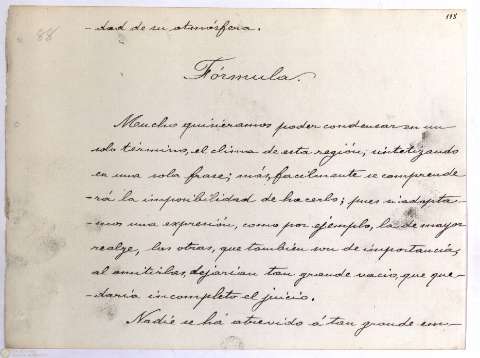 118
88
-dad de su atmósfera.
Fórmula.
Mucho quisiéramos poder condensar en un
solo término, el clima de esta región, sintetizando
en una sola frase; más, facilmente se comprende-
-rá la imposibilidad de hacerlo; pues si adopta-
-mos una expresión, como por ejemplo, la de mayor
realze, las otras, que también son de importancia,
al omitirlas, dejarían tan grande vacio, que que-
-daría incompleto el juicio.
Nadie se há atrevido á tan grande em-